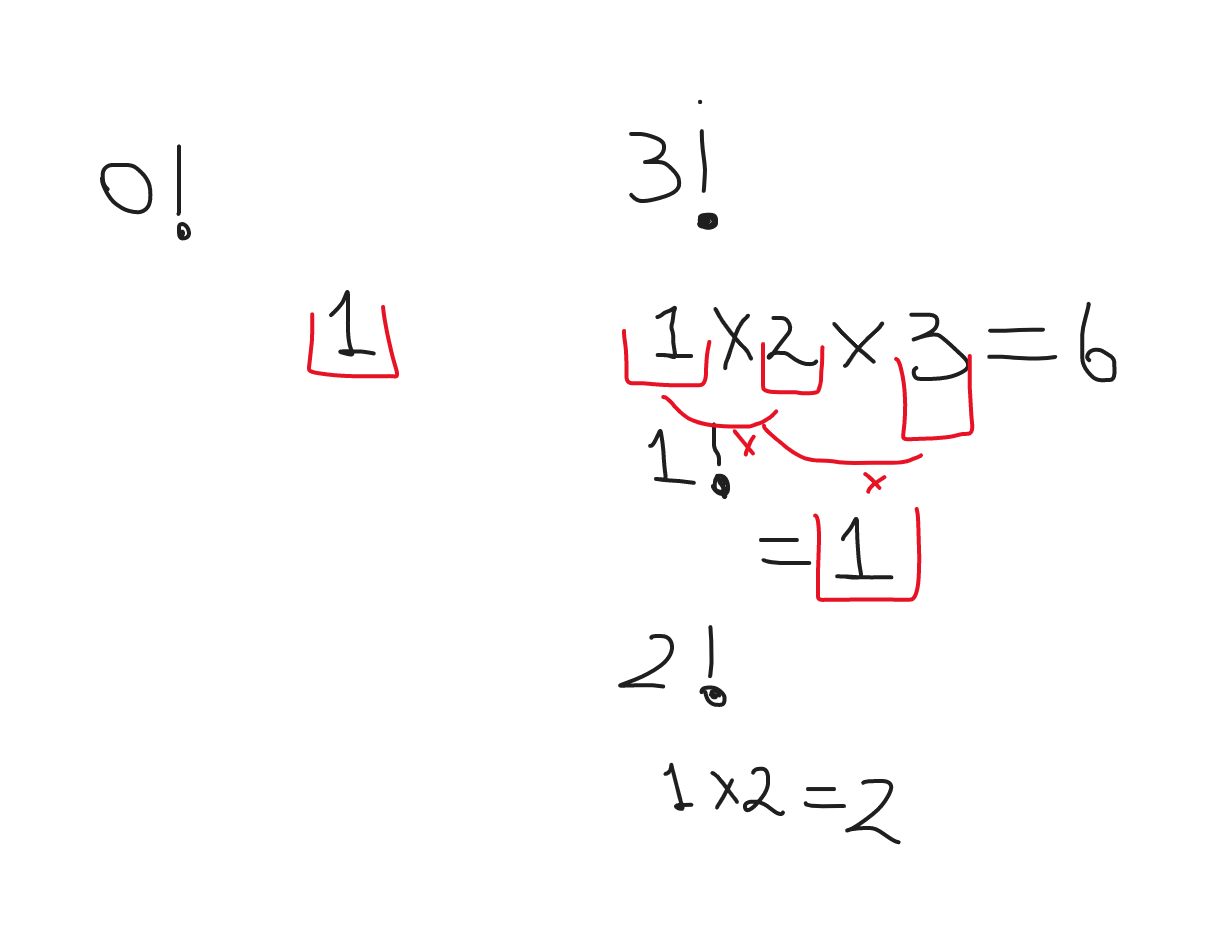 0!
1
3!
1 × 2 × 3 = 6
× ×
1!
= 1
2!
1 × 2 = 2